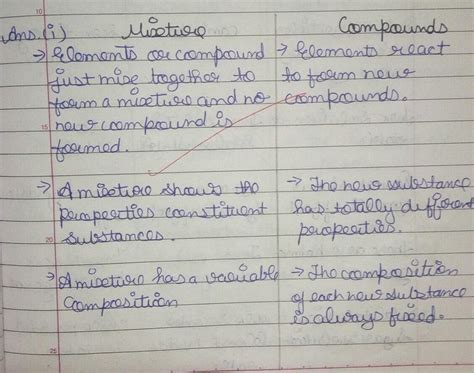 Ans.(i) Mixture Compounds
→ Elements or compound → Elements react
just mix together to to form new
form a mixture and no compounds.
new compound is
formed.
→ A mixture shows the → The new substance
properties constituent has totally different
substances. properties.
→ A mixture has a variable → The composition
composition of each new substance
is always fixed.